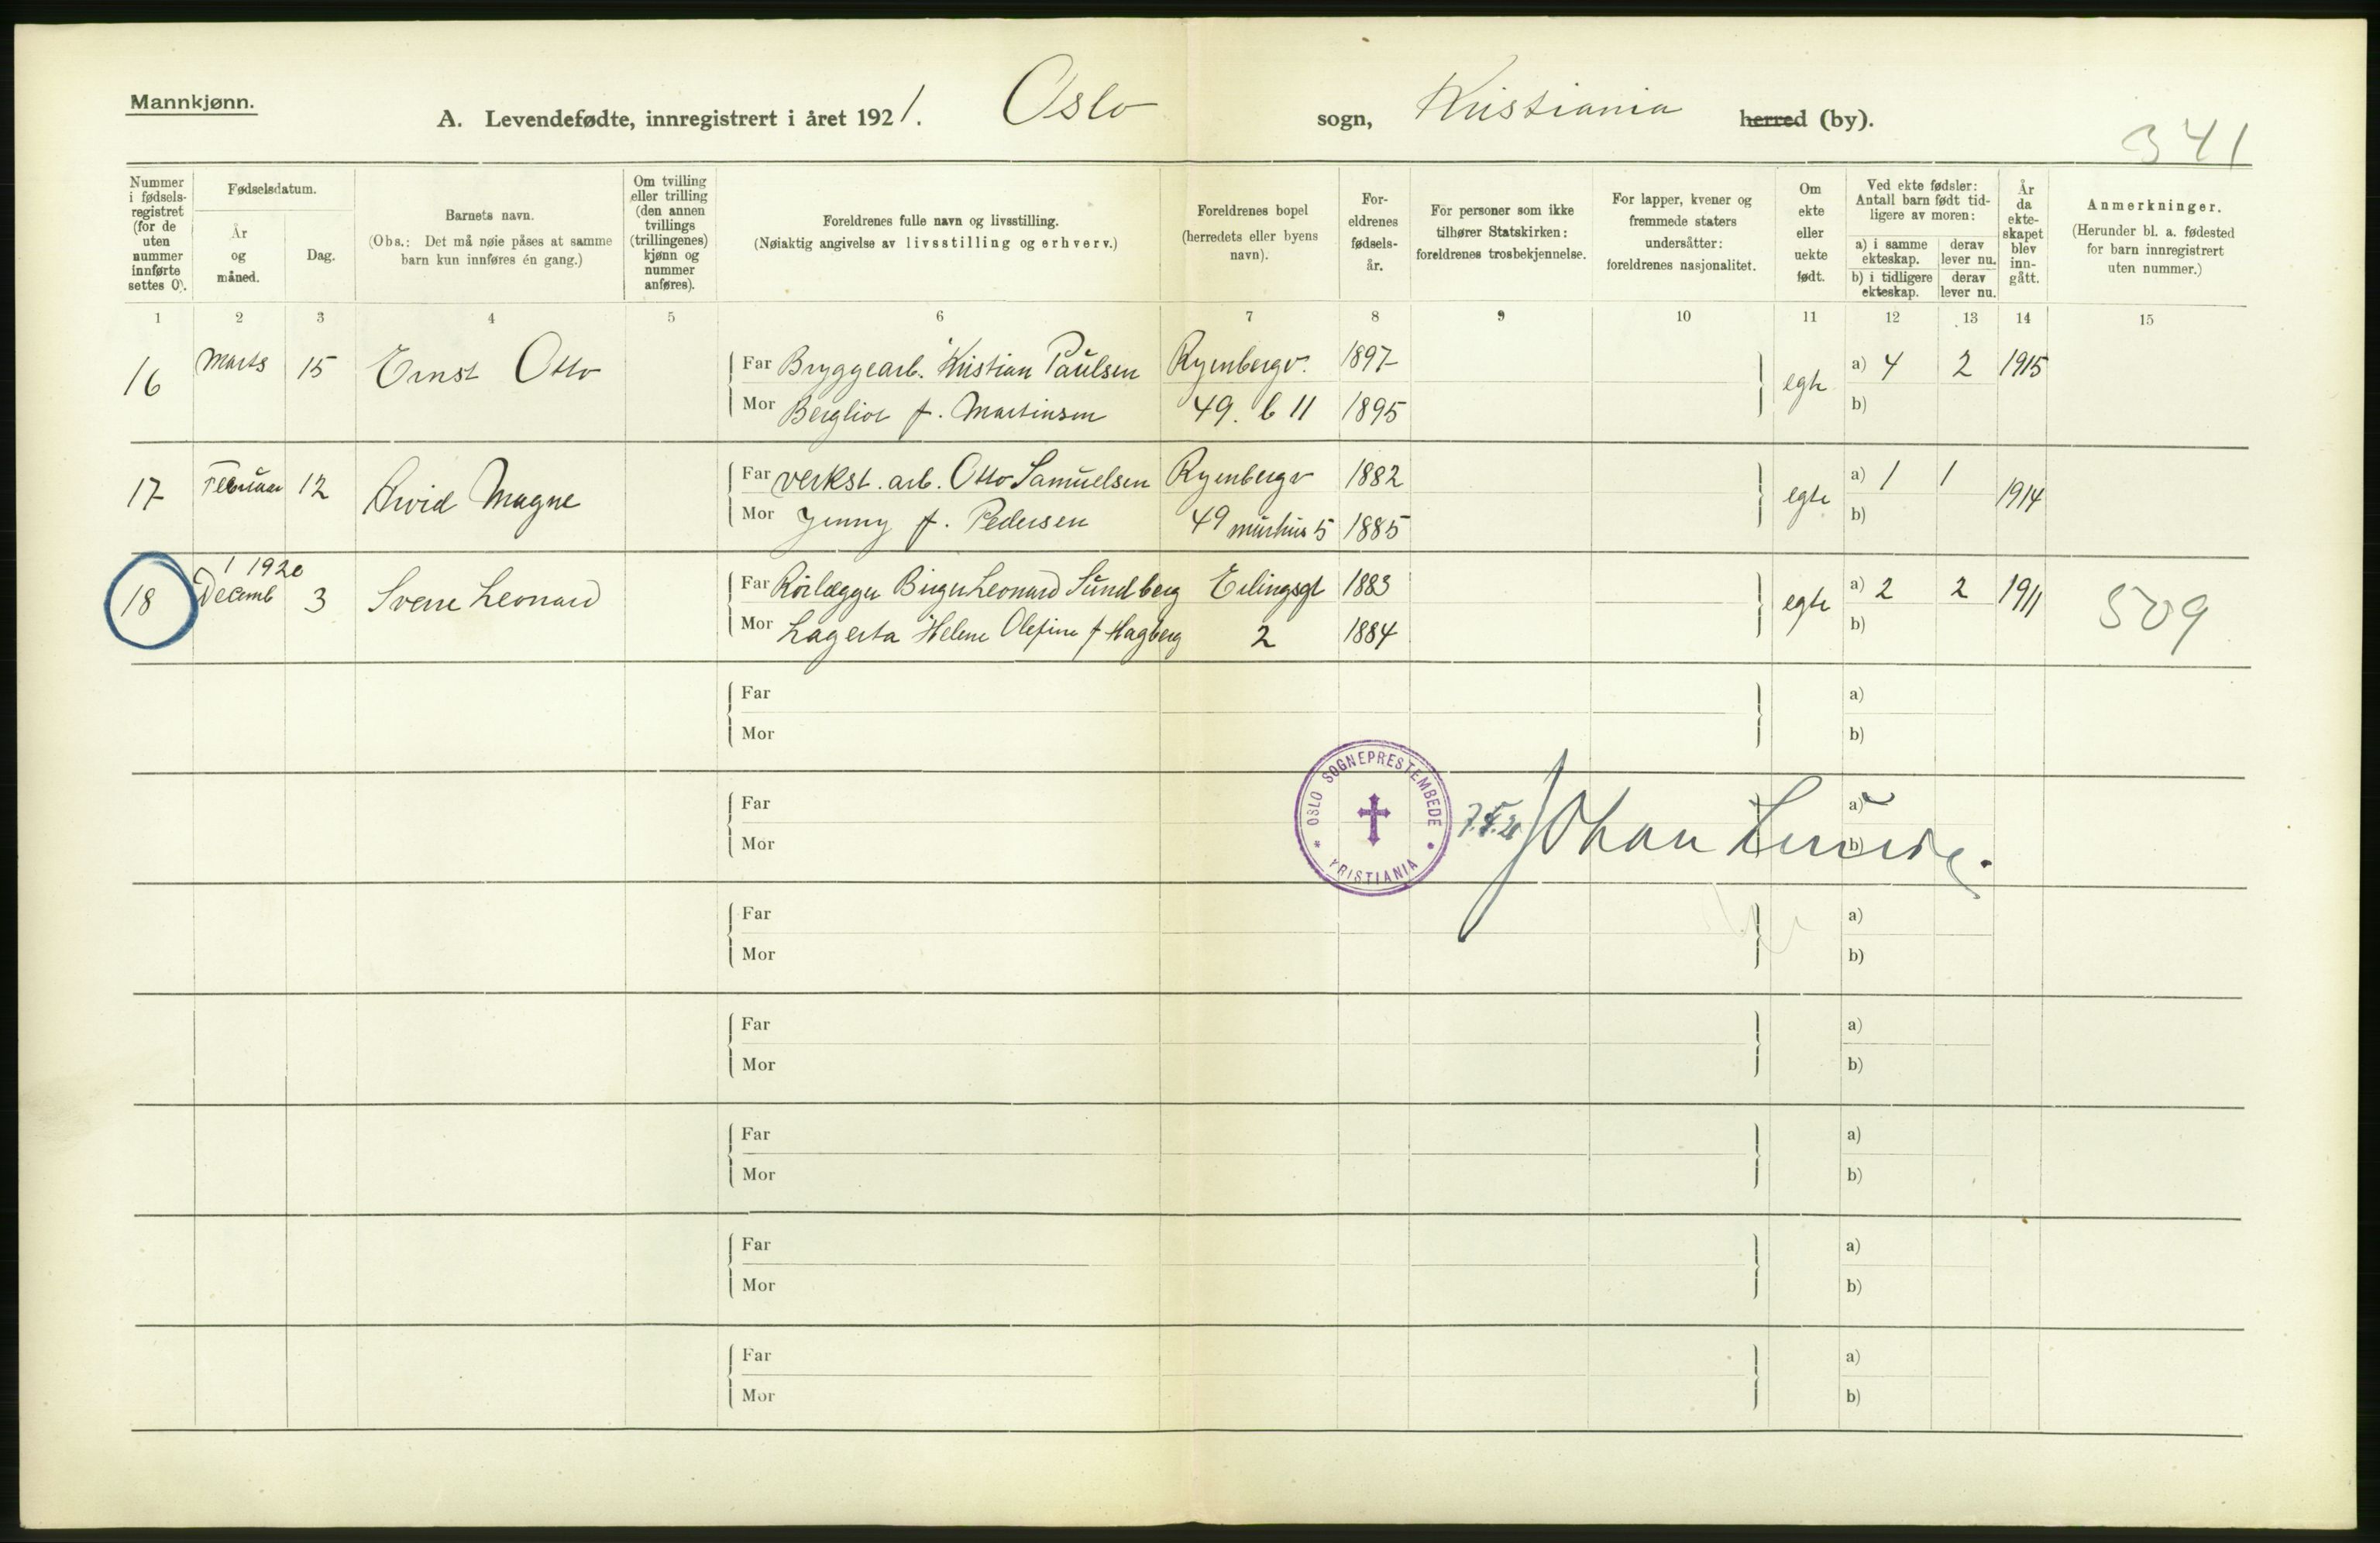 Mannkjønn.
A. Levendefødte, innregistrert i året 1921. Oslo sogn, Kristiania herred (by).
341
Nummer i fødselsregistret (for de uten nummer innførte settes 0).
Fødselsdatum.
År og måned.
Dag.
Barnets navn.
(Obs.: Det må nøie påses at samme barn kun innføres én gang.)
Om tvilling eller trilling (den annen tvillings (trillingenes) kjønn og nummer anføres).
Foreldrenes fulle navn og livsstilling.
(Nøiaktig angivelse av livsstilling og erhverv.)
Foreldrenes bopel (herredets eller byens navn).
Foreldrenes fødselsår.
For personer som ikke tilhører Statskirken: foreldrenes trosbekjennelse.
For lapper, kvener og fremmede staters undersåtter: foreldrenes nasjonalitet.
Om ekte eller uekte født.
Ved ekte fødsler: Antall barn født tidligere av moren:
a) i samme ekteskap.
derav lever nu.
b) i tidligere ekteskap.
derav lever nu.
År da ekteskapet blev inngått.
Anmerkninger.
(Herunder bl. a. fødested for barn innregistrert uten nummer.)
1 2 3 4 5 6 7 8 9 10 11 12 13 14 15
16 Marts 15 Ernst Otto Far Bryggearb. Kristian Paulsen Ryenbergv. 1897 egte a) 4 2 1915
Mor Bergliot f. Martinsen 49. b 11 1895 b)
17 Februar 12 Arvid Magne Far Verkst. arb. Otto Samuelsen Ryenbergv 1882 egte a) 1 1 1914
Mor Jenny f. Pedersen 49 murhus 5 1885 b)
1 1920
18 Decemb 3 Sverre Leonard Far Rørlægger Birger Leonard Sundberg Erlingsgt 1883 egte a) 2 2 1911 509
Mor Lagerta Helene Olefine f Hagberg 2 1884 b)
Far a)
Mor b)
Far a)
Mor b)
OSLO SOGNEPRESTEMBEDE
* KRISTIANIA •
Johan
Far a)
Mor b)
Far a)
Mor b)
Far a)
Mor b)
Far a)
Mor b)
Far a)
Mor b)